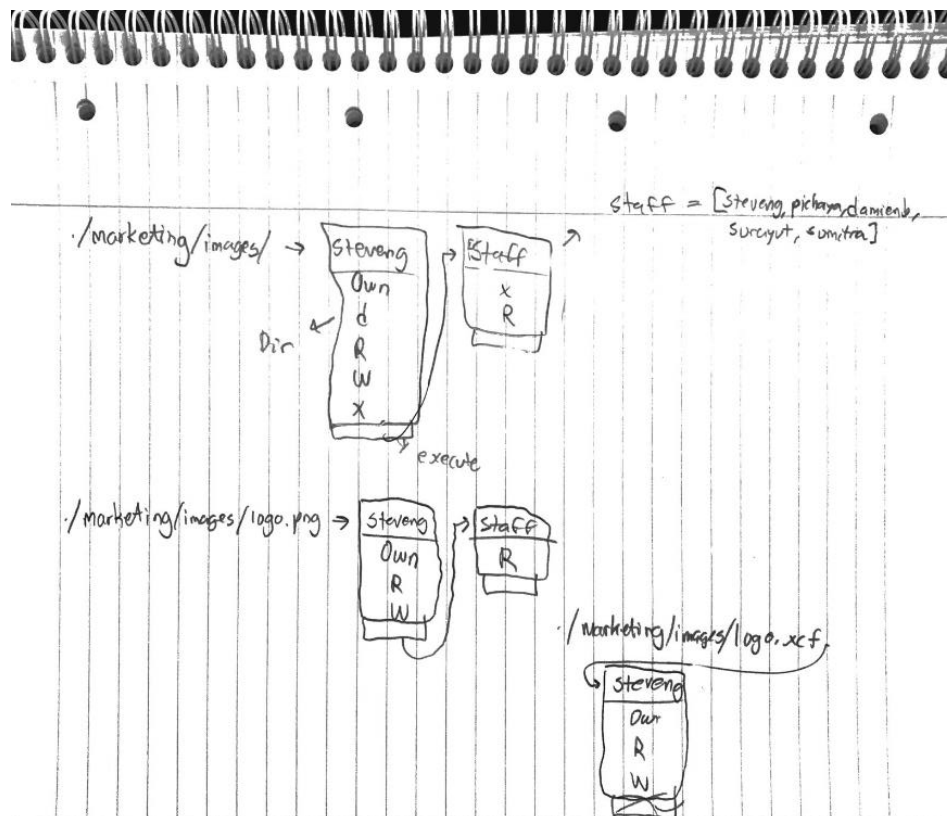 staff = [steveng, pichaya, damienb,
surayut, sumitra]
./marketing/images/ →
steveng
Own
d
R
W
X
Dir
execute
staff
x
R
./marketing/images/logo.png →
steveng
Own
R
W
staff
R
./marketing/images/logo.xcf
steveng
Own
R
W